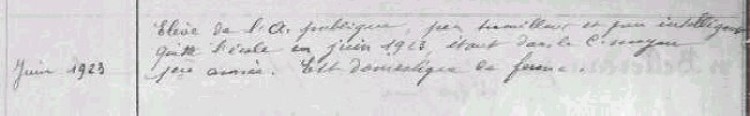 Elève de l'A. publique, peu travailleur et peu intelligent
quitte l'école en juin 1923, étant dans le C. moyen
Juin 1923 1ère année. Est domestique de ferme.